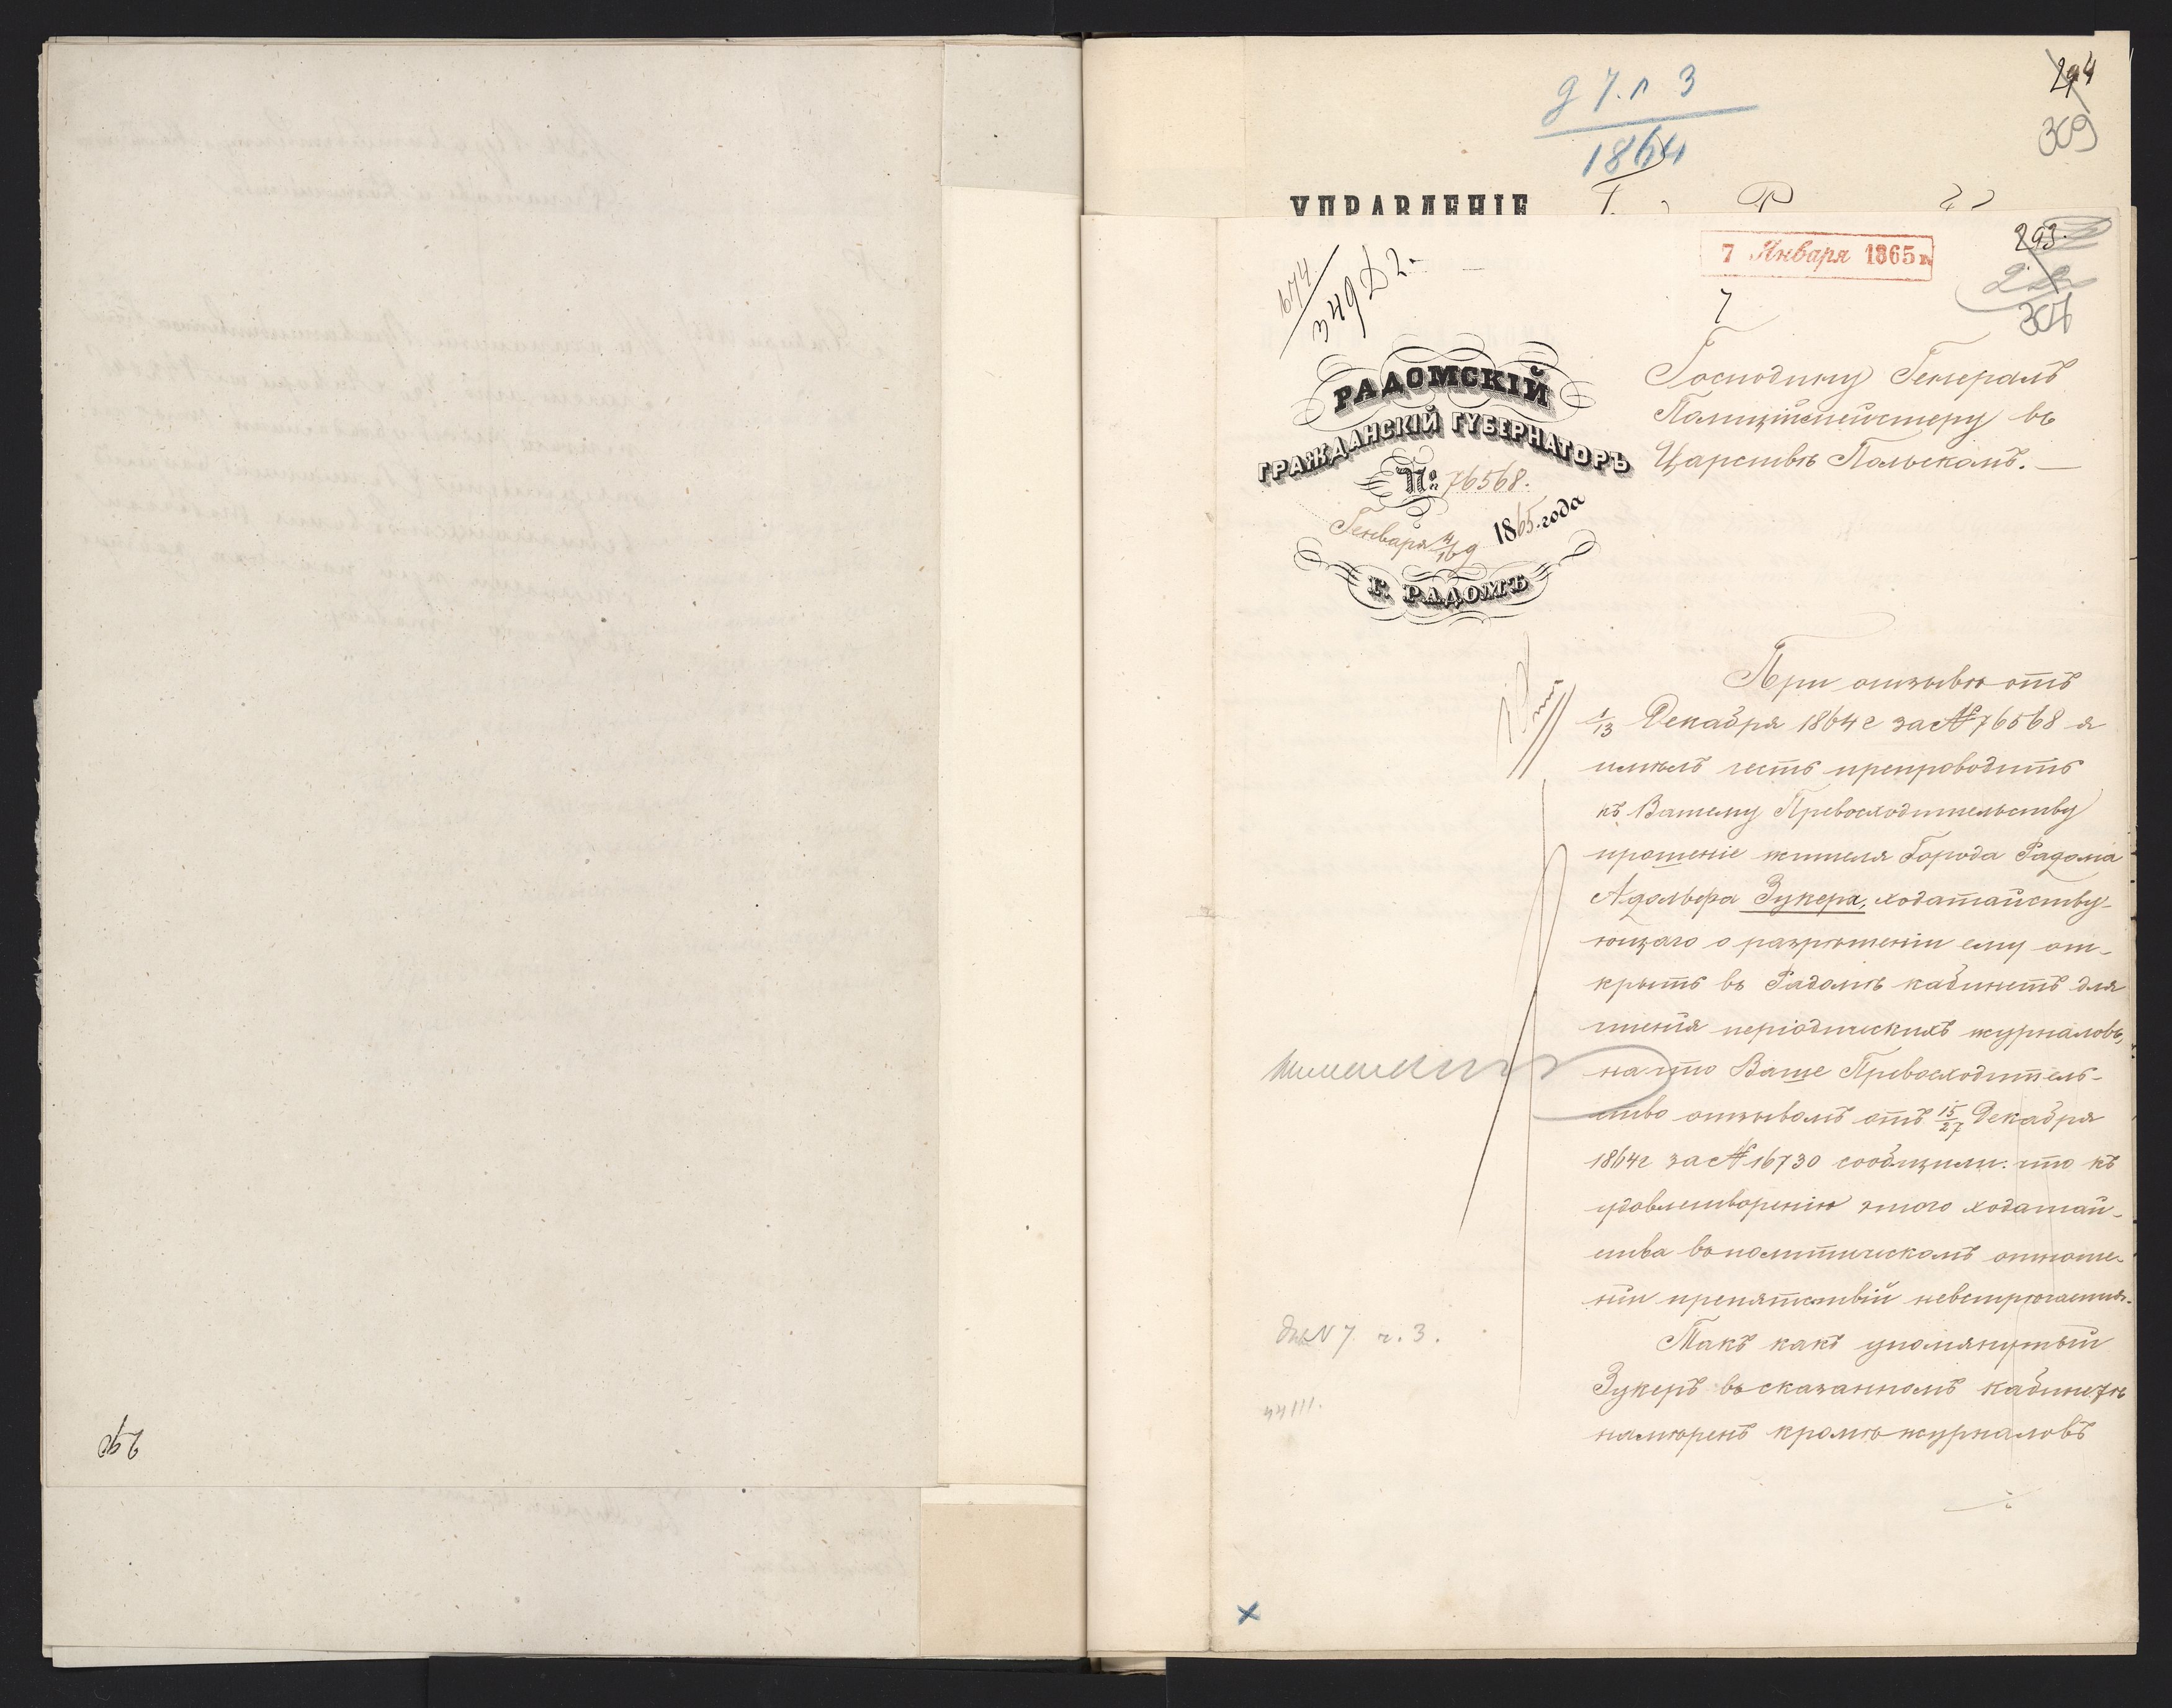 д 7. ч 3
1864
294
309
УПРАВЛЕНІЕ
7 Января 1865 г.
293
307
674
349 Д 2
7
РАДОМСКІЙ
ГРАЖДАНСКІЙ ГУБЕРНАТОРЪ
№ 76568.
Генваря 4/16 д 1865 года
Г. РАДОМЪ
Господину Генералъ
Полиціймейстеру въ
Царствѣ Польскомъ.
При отзывѣ отъ
1/13 Декабря 1864 г за № 76568 я
имѣлъ честь препроводить
къ Вашему Превосходительству
прошеніе жителя Города Радома
Адольфа Зукера, ходатайству-
ющаго о разрѣшеніи ему от-
крыть въ Радомѣ кабинетъ для
чтенія періодическихъ журналовъ,
на что Ваше Превосходитель-
ство отзывомъ отъ 15/27 Декабря
1864 г за № 16730 сообщили: что къ
удовлетворенію этого ходатай-
ства въ политическомъ отноше-
ніи препятствій невстрѣчается.
Такъ какъ упомянутый
Зукеръ въ сказанномъ кабинетѣ
намѣренъ кромѣ журналовъ
дѣл N 7 ч. 3.